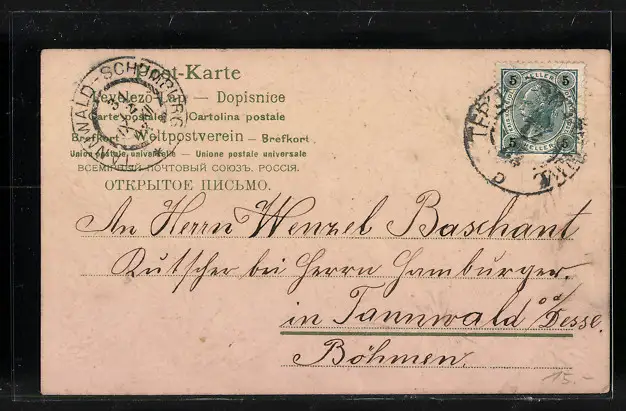 Post-Karte
Levelező-Lap — Dopisnice
Carte postale — Cartolina postale
Brefkort — Weltpostverein — Brefkort
Union postale universelle — Unione postale universale
ВСЕМІРНЫЙ ПОЧТОВЫЙ СОЮЗЪ. РОССІЯ.
ОТКРЫТОЕ ПИСЬМО.
TANNWALD-SCHUMBURG
5 HELLER 5
5 HELLER 5
An Herrn Wenzel Baschant
Kutscher bei Herrn Hamburger
in Tannwald a/d Desse.
Böhmen.
15.-